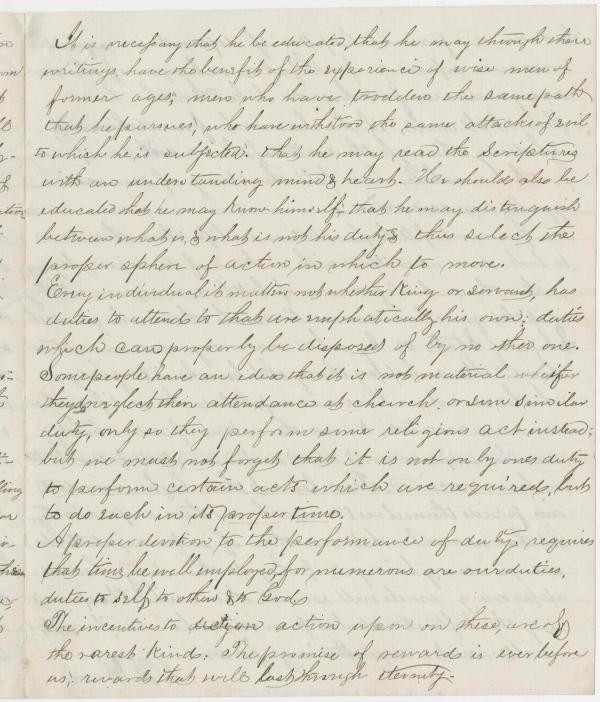 It is necessary that he be educated, that he may through their
writings, have the benefit of the experience of wise men of
former ages; men who have trodden the same path
that he pursues, who have withstood the same attacks of evil
to which he is subjected. that he may read the Scriptures
with an understanding mind & heart. He should also be
educated that he may know himself, that he may distinguish
between what is, & what is not his duty, & thus select the
proper sphere of action in which to move.
Every individual it matters not whether King or servant, has
duties to attend to that are emphatically his own; duties
which can properly be disposed of by no other one.
Some people have an idea that it is not material whether
they neglect their attendance at church or some similar
duty, only so they perform some religious act instead;
but we must not forget that it is not only ones duty
to perform certain acts which are required, but
to do each in its proper time.
A proper devotion to the performance of duty requires
that time be well employed, for numerous are our duties,
duties to self, to others & to God.
The incentives to action upon on these, are of
the rarest kind: The promise of rewards is ever before
us; rewards that will last through eternity.